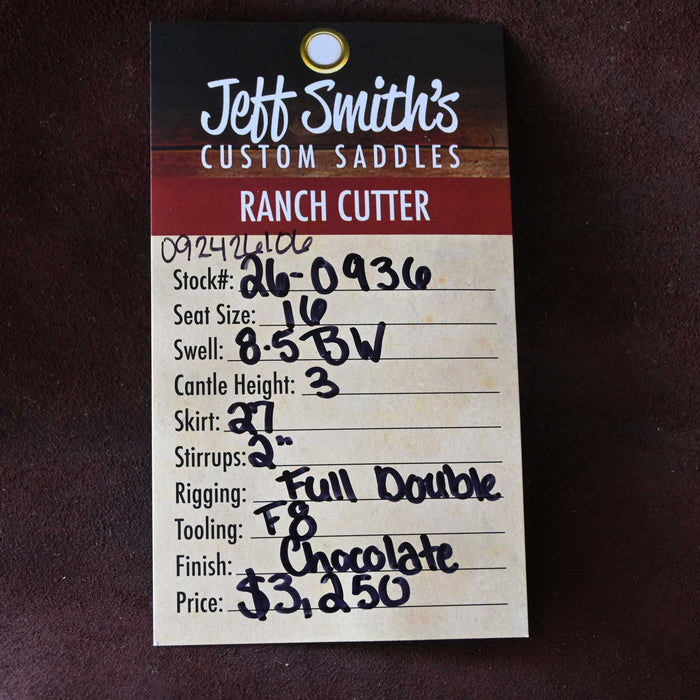 Jeff Smith's
CUSTOM SADDLES
RANCH CUTTER
092426106
Stock#: 26-0936
Seat Size: 16
Swell: 8.5 BW
Cantle Height: 3
Skirt: 27
Stirrups: 2"
Rigging: Full Double
Tooling: F8
Finish: Chocolate
Price: $3,250